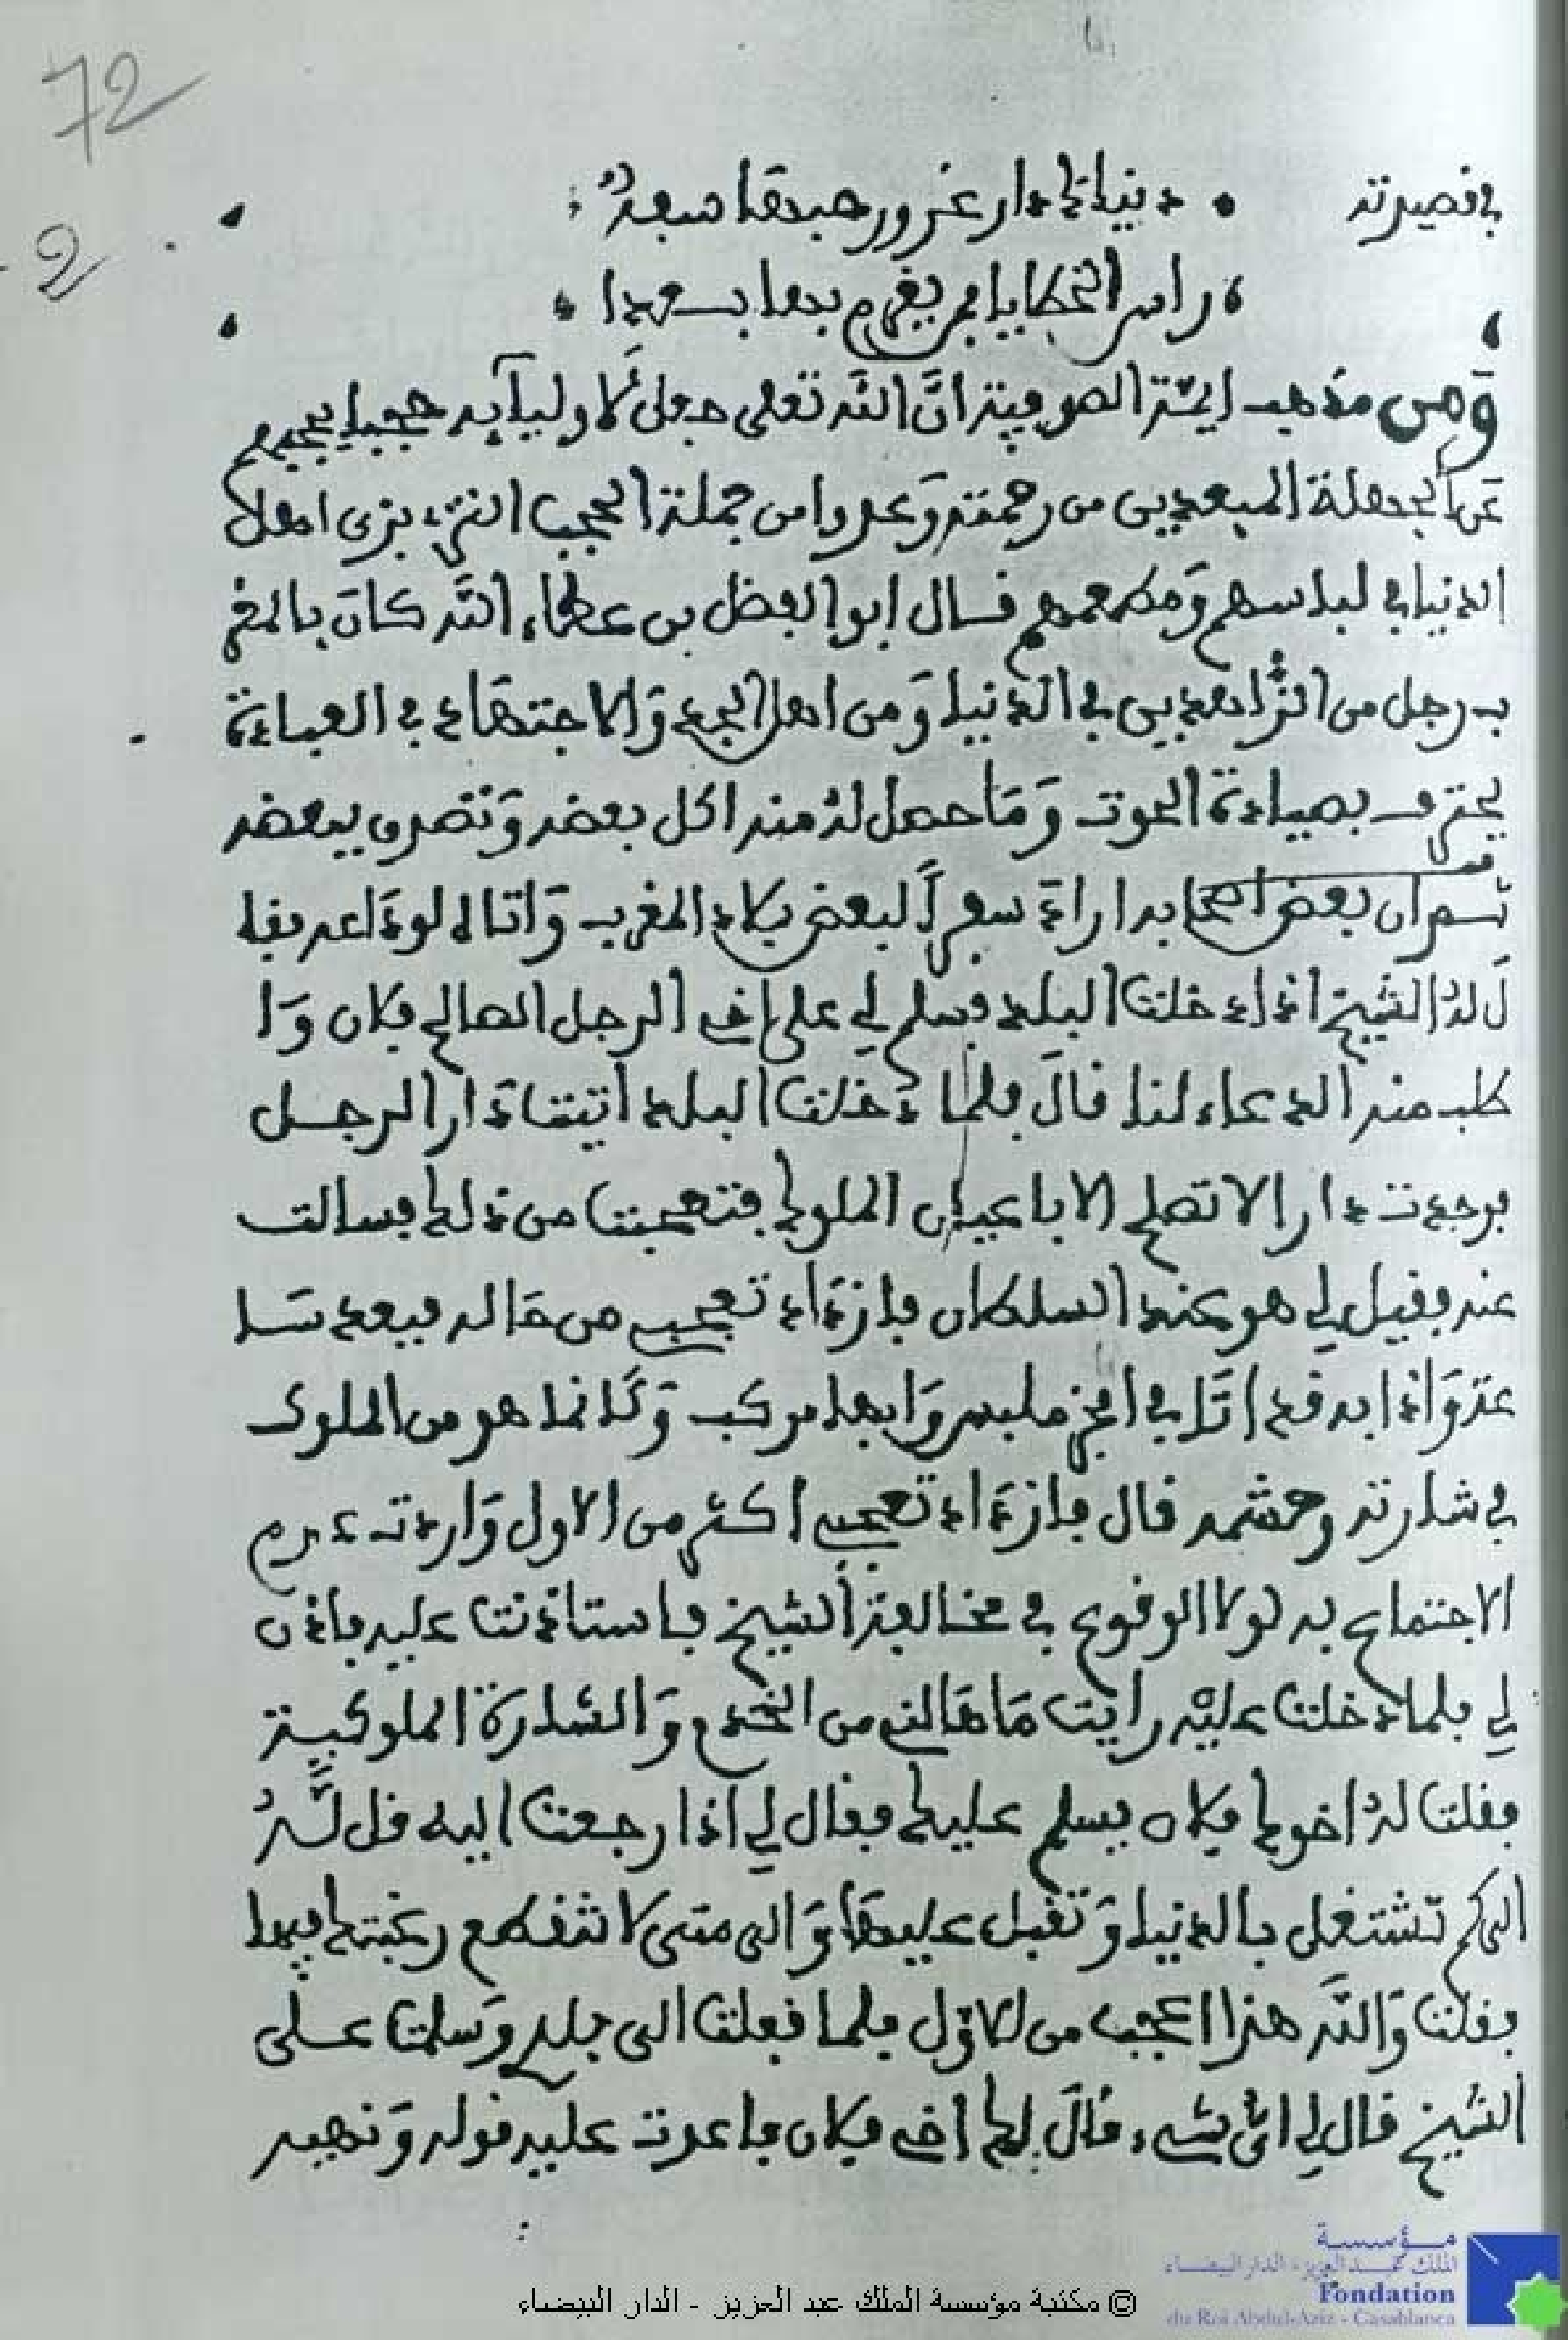 72
2
في قصيدته • دنياك دار غرور حبها سفه :
راس الخطايا فمن يغرم بها بعدا
ومن مذهب ايمة الصوفية ان الله تعلى جعل لاوليآيه حجبا يحجبهم
عن الجهلة المبعدين من رحمته وعدوا من جملة الحجب التزيء بزى اهل
الدنيا في لباسهم ومطعمهم فال ابو الفضل بن عطاء الله كان بالمغر
ب رجل من الزاهدين في الدنيا ومن اهل الجد والاجتهاد في العبادة
يحترف بصيادة الحوت وما حصل له منه اكل بعضه وتصدق ببعضه
ثم ان بعض اصحابه اراد سفرا لبعض بلاد المغرب واتاه لوداعه فقا
ل له الشيخ اذا دخلت البلد فسلم لي على اخي الرجل الصالح فلان وا
طلب منه الدعاء لنا قال فلما دخلت البلد اتيت دار الرجل
فوجدت دارا لا تصلح الا باعيان الملوك فتعجبت من ذلك فسالت
عنه فقيل لي هو عند السلطان فازداد تعجبي من حاله فبعد سا
عة واذا به قد اتا في افخر ملبس وابهى مركب وكانما هو من الملوك
في شارته وحشمه قال فازداد تعجبي اكثر من الاول واردت عدم
الاجتماع به لولا الوقوع في مخالفة الشيخ فاستاذنت عليه فاذن
لي فلما دخلت عليه رايت ما هالني من الخدم والشارة الملوكية
فقلت له اخوك فلان يسلم عليك فقال لي اذا رجعت اليه قل له
الى كم تشتغل بالدنيا وتقبل عليها والى متى لا تنقطع رغبتك فيها
فقلت والله هذا اعجب من الاول فلما قفلت الى بلدي وسلمت على
الشيخ قال لي اى شيء قال لك اخي فلان فاعدت عليه قوله ونهيه
© مكتبة مؤسسة الملك عبد العزيز - الدار البيضاء
مؤسسة
الملك عبد العزيز - الدار البيضاء
Fondation
du Roi Abdul-Aziz - Casablanca